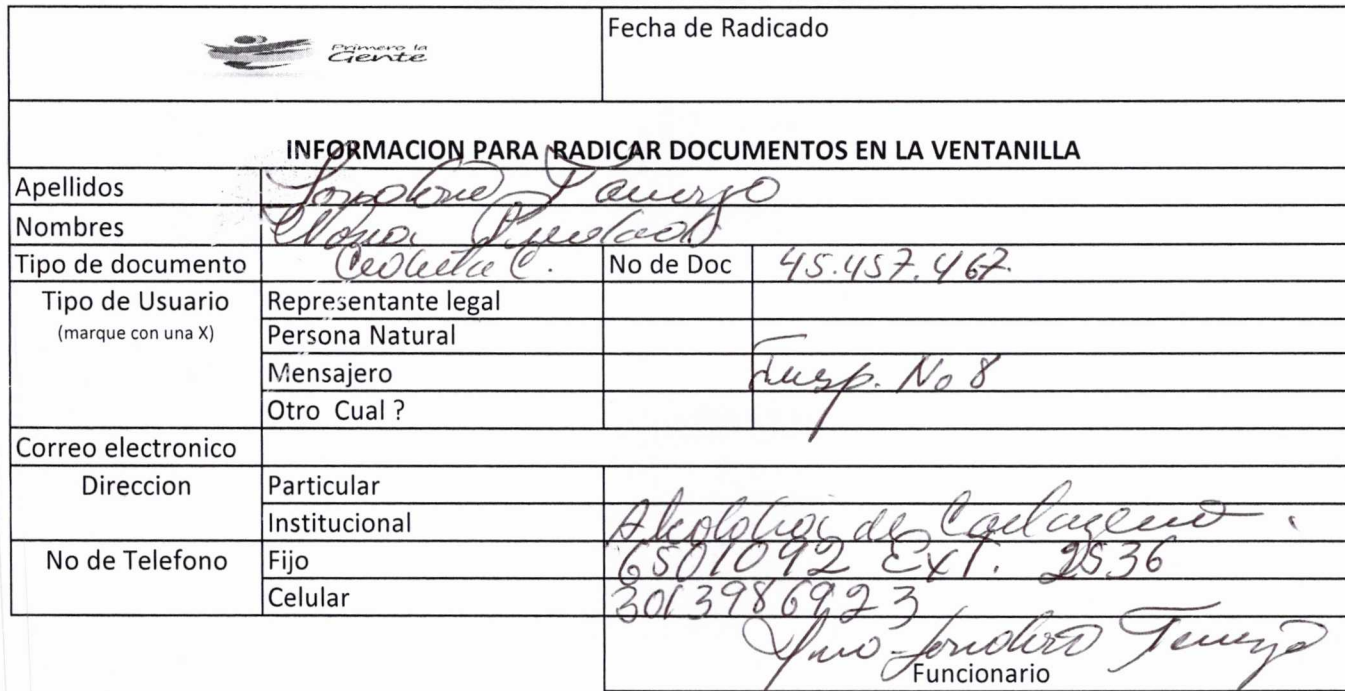 Primero la
Gente
Fecha de Radicado
INFORMACION PARA RADICAR DOCUMENTOS EN LA VENTANILLA
Apellidos
Nombres
Tipo de documento Cedula C. No de Doc 45.457.467
Tipo de Usuario Representante legal
(marque con una X) Persona Natural
Mensajero Insp. No 8
Otro Cual ?
Correo electronico
Direccion Particular
Institucional Alcaldia de Cartagena.
No de Telefono Fijo 6501092 Ext. 2536
Celular 3013986923
Funcionario